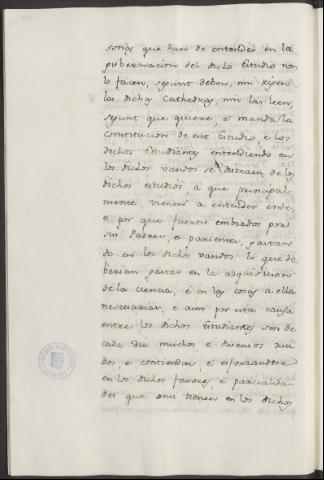 sonas que han de entender en la
gubernacion del dicho Estudio non
lo facen, segunt deben, nin rigen
las dichas Cathedras, nin las leen,
segunt que quiere, e manda la
constitucion de ese Estudio, e los
dichos Estudiantes entendiendo en
los dichos vandos se distraen de los
dichos estudios á que principal
mente vienen á entender ende
e por que fueron embiados por
sus Padres, e parientes, gastan
do en los dichos vandos lo que de
berian gastar en la adquisicion
de la ciencia, é en las cosas á ella
nescesarias, e aun por esta causa
entre los dichos Estudiantes son de
cada dia muchos e diversos rui
dos, e contiendas, e esforzandose
en los dichos favores, é parcialida
des que ansi tienen en los dichos